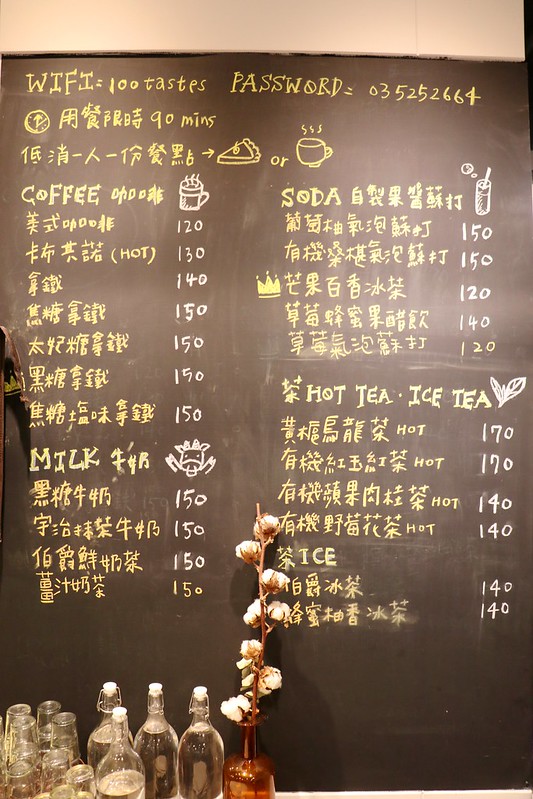 WIFI= 100tastes PASSWORD= 035252664
用餐限時90 mins
低消一人一份餐點→ or
COFFEE 咖啡
美式咖啡 120
卡布其諾 (HOT) 130
拿鐵 140
焦糖拿鐵 150
太妃糖拿鐵 150
黑糖拿鐵 150
焦糖塩味拿鐵 150
MILK 牛奶
黑糖牛奶 150
宇治抹茶牛奶 150
伯爵鮮奶茶 150
薑汁奶茶 150
SODA 自製果醬蘇打
葡萄柚氣泡蘇打 150
有機桑椹氣泡蘇打 150
芒果百香冰茶 120
草莓蜂蜜果醋飲 140
草莓氣泡蘇打 120
茶 HOT TEA · ICE TEA
黄梔烏龍茶 HOT 170
有機紅玉紅茶 HOT 170
有機蘋果肉桂茶 HOT 140
有機野莓花茶 HOT 140
茶 ICE
伯爵冰茶 140
蜂蜜柚香冰茶 140